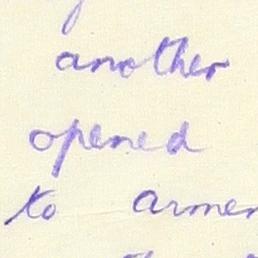 another
opened
to armen